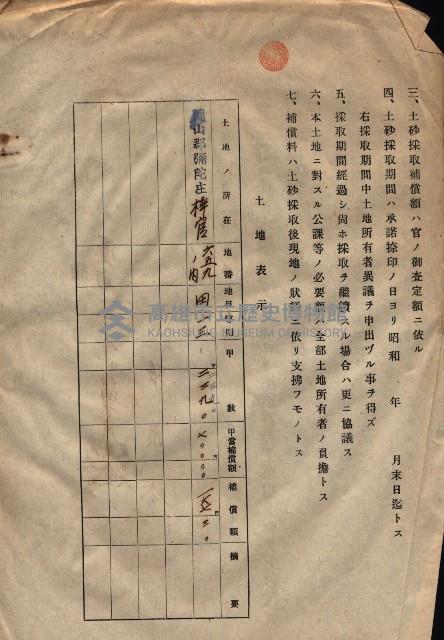 三、土砂採取補償額ハ官ノ御査定額ニ依ル
四、土砂採取期間ハ承諾捺印ノ日ヨリ昭和　年　月末日迄トス
右採取期間中土地所有者異議ヲ申出ヅル事ヲ得ズ
五、採取期間經過シ尚ホ採取ヲ繼續スル場合ハ更ニ協議ス
六、本土地ニ對スル公課等ノ必要 全部土地所有者ノ負擔トス
七、補償料ハ土砂採取後現地ノ狀 依リ支拂フモノトス
土地表示
土地ノ所在 地番 地目 甲數 甲當補償額 補償額 摘要
岡山郡彌陀庄梓官 六五九ノ內 田 三
高雄市立歷史博物館
KAOHSIUNG MUSEUM OF HISTORY